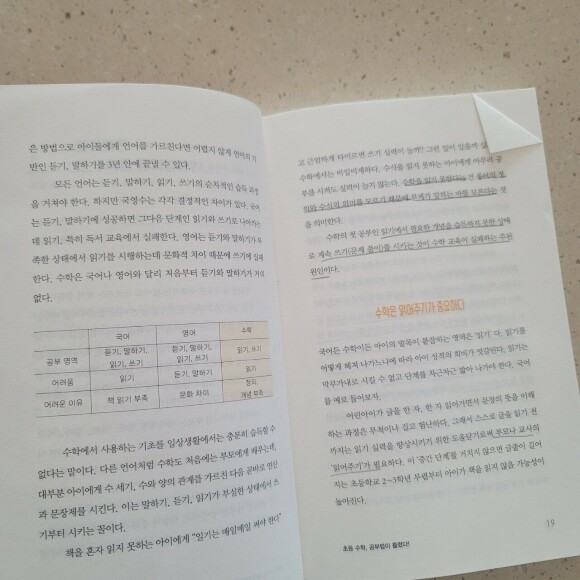 은 방법으로 아이들에게 언어를 가르친다면 어렵지 않게 언어의 기
반인 듣기, 말하기를 3년 안에 끝낼 수 있다.
모든 언어는 듣기, 말하기, 읽기, 쓰기의 순차적인 습득 과정
을 거쳐야 한다. 하지만 국영수는 각각 결정적인 차이가 있다. 국어
는 듣기, 말하기에 성공하면 그다음 단계인 읽기와 쓰기로 나아가는
데 읽기, 특히 독서 교육에서 실패한다. 영어는 듣기와 말하기가 부
족한 상태에서 읽기를 시행하는데 문화적 차이 때문에 쓰기에 실패
한다. 수학은 국어나 영어와 달리 처음부터 듣기와 말하기가 거의
없다.
국어 영어 수학
공부 영역 듣기, 말하기, 읽기, 쓰기 듣기, 말하기, 읽기, 쓰기 읽기, 쓰기
어려움 읽기 듣기, 말하기 읽기
어려운 이유 책 읽기 부족 문화 차이 정의, 개념 부족
수학에서 사용하는 기초를 일상생활에서는 충분히 습득할 수
없다는 말이다. 다른 언어처럼 수학도 처음에는 부모에게 배우는데,
대부분 아이에게 수 세기, 수와 양의 관계를 가르친 다음 곧바로 연산
과 문장제를 시킨다. 이는 말하기, 듣기, 읽기가 부실한 상태에서 쓰
기부터 시키는 꼴이다.
책을 혼자 읽지 못하는 아이에게 “일기는 매일매일 써야 한다”
고 근엄하게 타이르면 쓰기 실력이 늘까? 그런 일이 있을까 싶
수학에서는 비일비재하다. 수식을 읽지 못하는 아이에게 아무리 공
부를 시켜도 실력이 늘지 않는다. 수학을 읽지 못한다는 건 용어의 정
의와 수식의 의미를 모르기 때문에 문제가 말하는 바를 모른다는 것
을 의미한다.
수학의 첫 공부인 읽기에서 필요한 개념을 습득하지 못한 상태
로 계속 쓰기(문제 풀이)를 시키는 것이 수학 교육이 실패하는 주된
원인이다.
수학은 읽어주기가 중요하다
국어든 수학이든 아이의 발목이 붙잡히는 영역은 ‘읽기’다. 읽기를
어떻게 헤쳐 나가느냐에 따라 아이 성적의 희비가 엇갈린다. 읽기는
막무가내로 시킬 수 없고 단계를 차근차근 밟아 나가야 한다. 국어
를 예로 들어보자.
어린아이가 글을 한 자, 한 자 읽어가면서 문장의 뜻을 이해
하는 과정은 무척이나 길고 험난하다. 그래서 스스로 글을 읽기 전
까지는 읽기 실력을 향상시키기 위한 도움닫기로써 부모나 교사의
‘읽어주기’가 필요하다. 이 ‘중간 단계’를 거치지 않으면 글줄이 길어
지는 초등학교 2~3학년 무렵부터 아이가 책을 읽지 않을 가능성이
높아진다.
초등 수학, 공부법이 틀렸다!
19